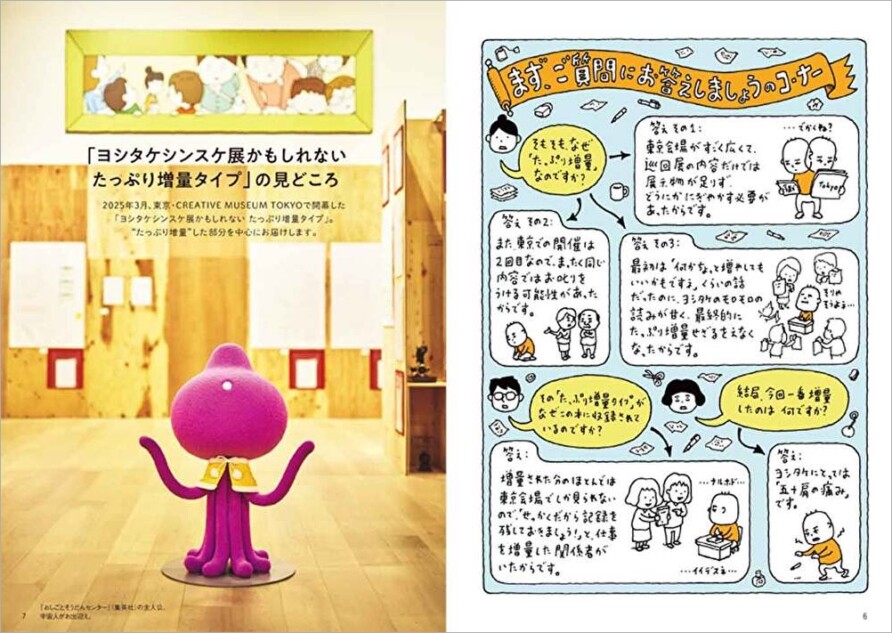 まず、ご質問にお答えしましょうのコーナー
そもそも、なぜ
「たっぷり増量」
なのですか?
答え その1:
東京会場がすごく広くて、
巡回展の内容だけでは
展示物が足りず、
どうにかにぎやかす必要が
あったからです。
…でかくね?
Tokyo
答え その2:
また、東京での開催は
2回目なので、まったく同じ
内容ではお叱りを
うける可能性があった
からです。
答え その3:
最初は「何かな、と増やしても
いいかもですう」くらいの話
だったのに、ヨシタケのモロモロの
読みが甘く、最終的に
たっぷり増量せざるをえなく
なったからです。
そりゃ
そうよう…
その「たっぷり増量タイプ」が
なぜこの本に収録されて
いるのですか?
答え:
増量された分のほとんどは
東京会場でしか見られない
ので、「せっかくだから記録を
残しておきましょう!」と、仕事
を増量した関係者が
いたからです。
…ナルホド…
…イイデスネ…
結局、今回一番増量
したのは 何ですか?
答え:
ヨシタケにとっては
「五十肩の痛み」
です。
6
「ヨシタケシンスケ展かもしれない
たっぷり増量タイプ」の見どころ
2025年3月、東京・CREATIVE MUSEUM TOKYOで開幕した
「ヨシタケシンスケ展かもしれない たっぷり増量タイプ」。
“たっぷり増量”した部分を中心にお届けします。
『おしごとそうだんセンター』(集英社)の主人公、
宇宙人がお出迎え。
7